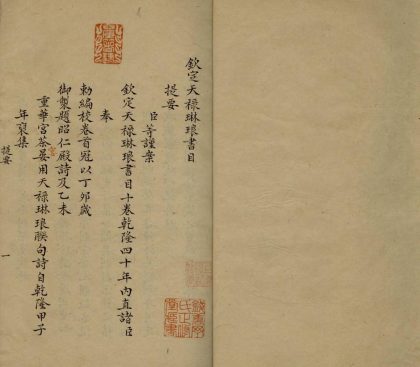 欽定天祿琳琅書目
提要
臣等謹案
欽定天祿琳琅書目十卷乾隆四十年內直諸臣
奉
勅編校卷首冠以丁卯歲
御製題昭仁殿詩及乙未
重華宮茶宴用天祿琳琅聯句詩自乾隆甲子
年裒集
提要
一